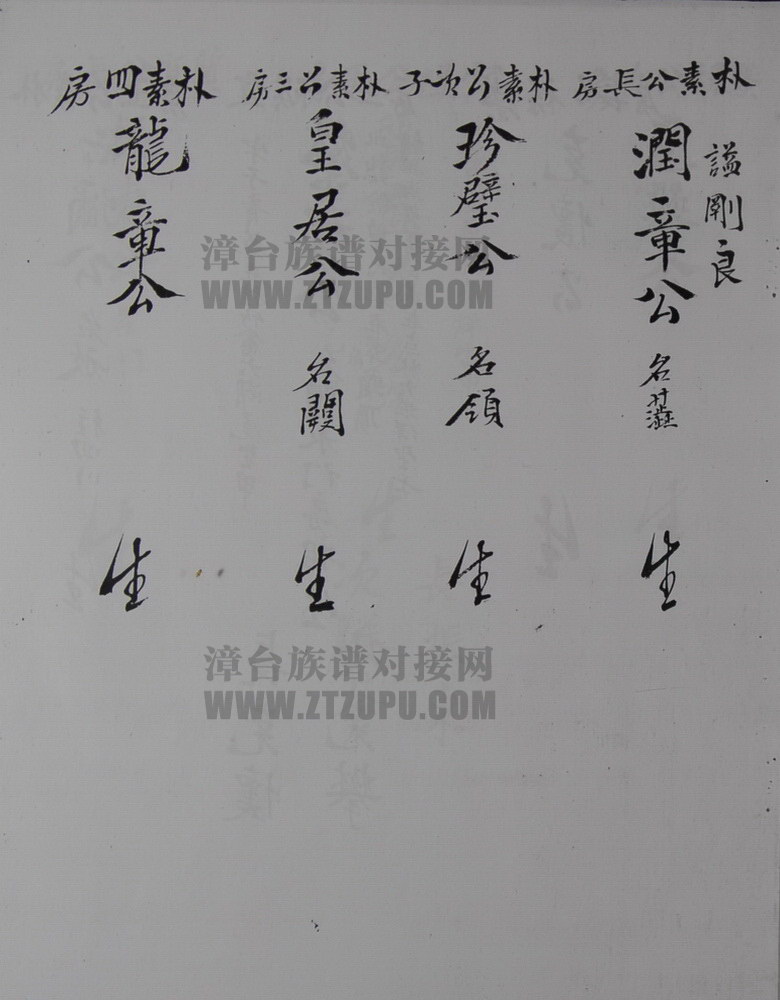 朴素公長房
諡剛良
潤章公
名
生
朴素公次子
珍璧公
名領
生
朴素公三房
皇居公
名闕
生
朴素四房
龍章公
生
漳台族谱对接网
WWW.ZTZUPU.COM
漳台族谱对接网
WWW.ZTZUPU.COM